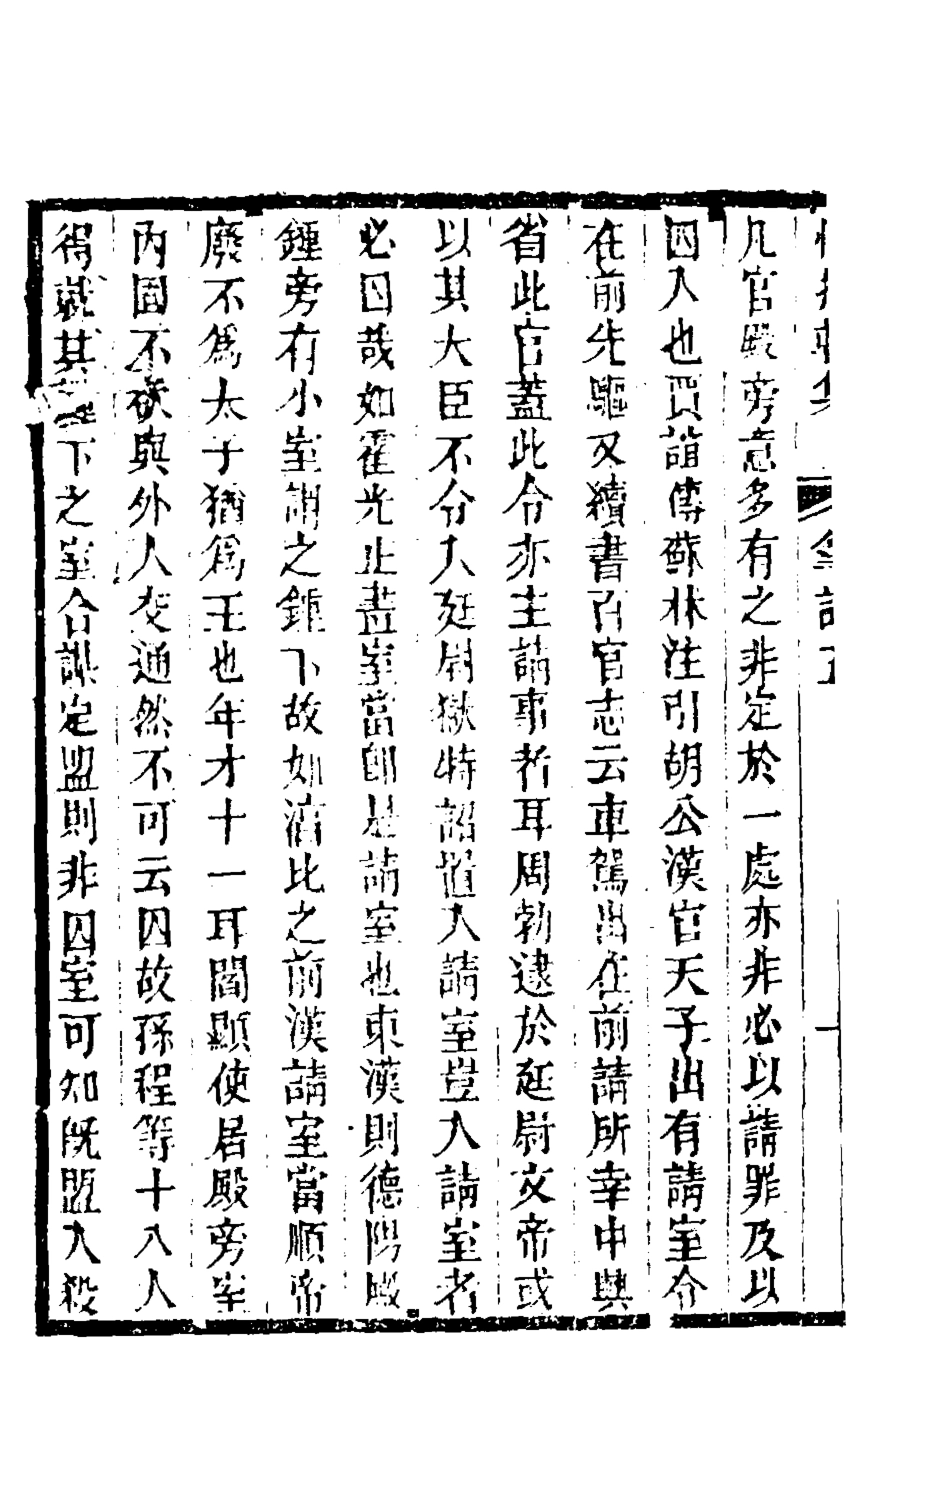 凡官殿旁意多有之非定於一處亦非必以請罪及以
囚人也賈誼傳蘇林注引胡公漢官天子出有請室令
在前先驅又續書百官志云車駕出在前請所幸中興
省此官蓋此令亦主請事者耳周勃逮於延尉文帝或
以其大臣不令入延尉獄特詔權入請室豈入請室者
必囚哉如霍光止畫室當即是請室也東漢則德陽殿
鍾旁有小室謂之鍾下故如淳比之前漢請室當順帝
廢不爲太子猶爲王也年才十一耳閻顯使居殿旁室
內固不欲與外人交通然不可云囚故孫程等十八人
得就其下之室合謀定盟則非囚室可知既盟入殺